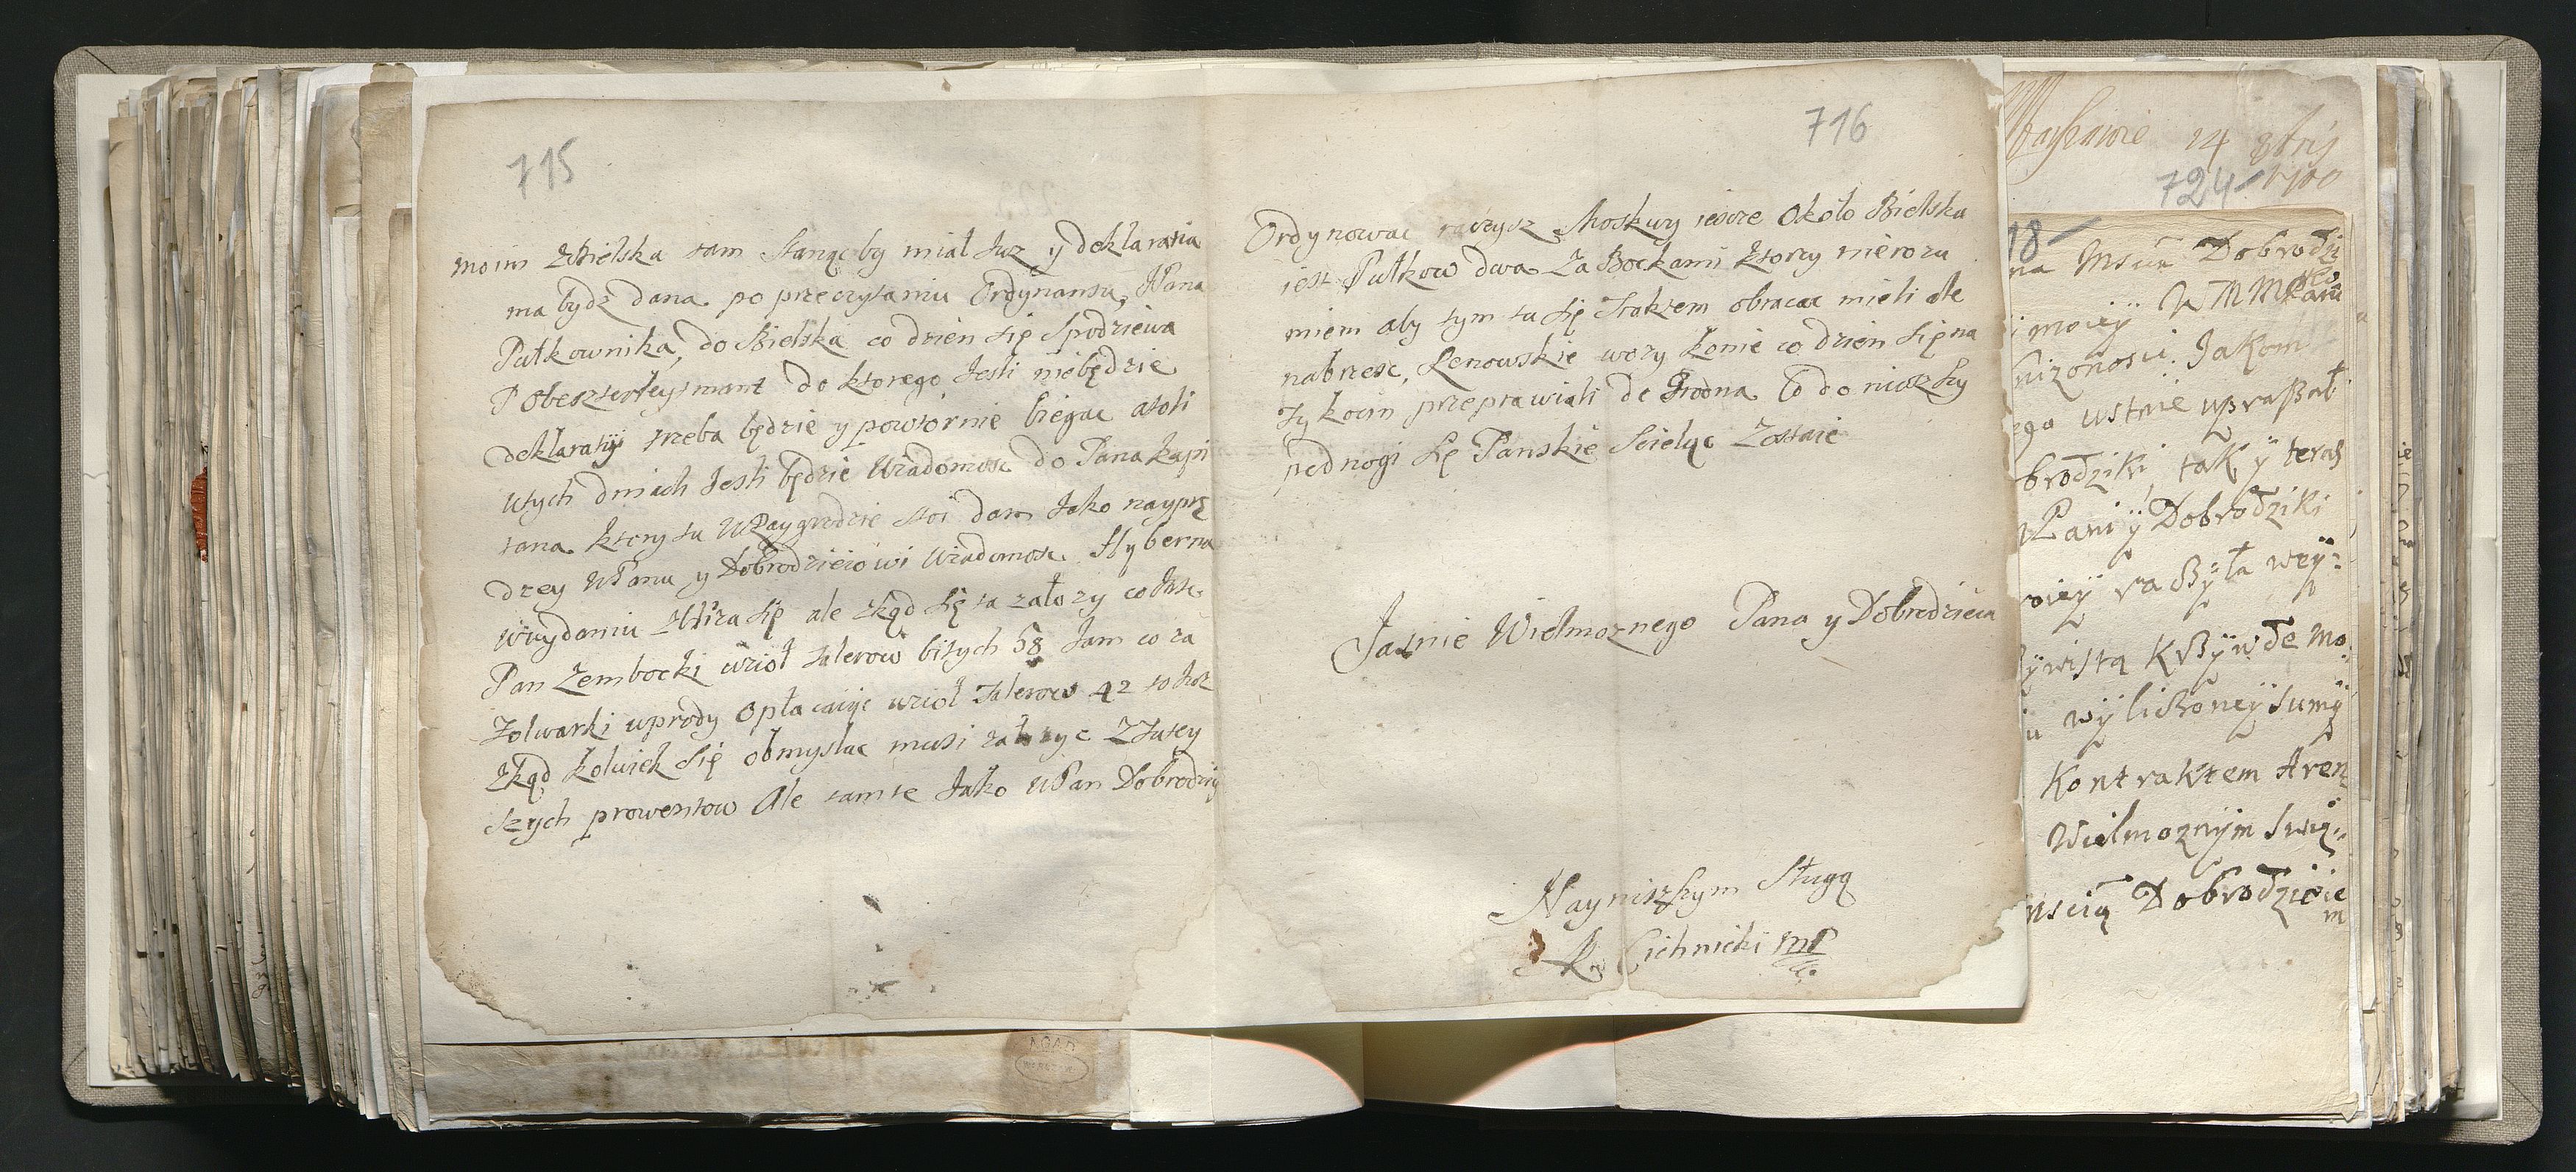 715
moim zBielska tam Stanąc by miał Juz y deklaratia
ma bydz dana po przeczytaniu Ordynansu, JPana
Pułkownika, do Bielska co dzien się Spodziewa
P Obeszterleytmant do ktorego Jesli niebędzie
deklaratij trzeba będzie y powtornie biegac atoli
wtych dniach Jesli będzie Wiadomosc do Pana Kapi
tana ktory tu WRaygrodzie stoi dam Jako nayprę
drzey WPanu y Dobrodzieiowi Wiadomosc Hyberna
wwydaniu zbliza się ale zkąd się ta załozy co
Pan Zembocki wzioł talerow bitych 58 Jam co za
Zolwarki wprody opłacaiąc wzioł Talerow 42 to Juz
zkąd kolwiek się obmyslac musi załozyc ztutey
szych prowentow Ale tamte Jako WPan Dobrodziy
716
Ordynowac raczysz Moskwy iescze Około Bielska
iest Pułkow dwa za Bockami ktorzy nierozu
miem aby tym tu się Traktem obracac mieli ale
nabrzesc, Lenowskie wozy konie co dzien się na
Tykocin przeprawiali do Grodna to doniozszy
pod nogi się Panskie Scieląc Zostaie
Jasnie Wielmoznego Pana y Dobrodzieia
Nayniszszym Sługą
R Cichnicki mp
24
724
1700
18
na Dobrodzi
moieÿ W M M Pani
nizonosci. Jakom
ego ustnie uprasał
brodziki, tak ÿ teras
Pani ÿ Dobrodziki
wistą Krzÿwde mo
wÿliczoneÿ sumÿ
Kontraktem Aren
Wielmoznÿm
Dobrodzieie
m
AGAD
WARSZAWA